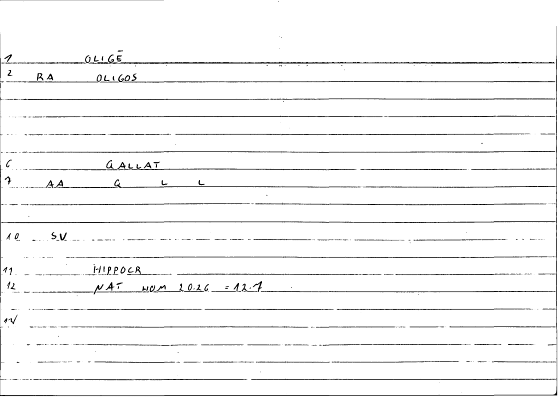 1 OLIGĒ
2 RA OLIGOS
6 GALLAT
7 AA G L L
10 SV
11 HIPPOCR
12 NAT HOM 20.26 = 12.7